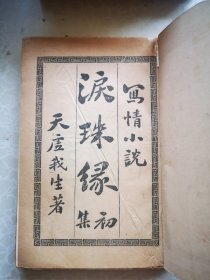 寫情小說
淚珠緣 初集
天虛我生著